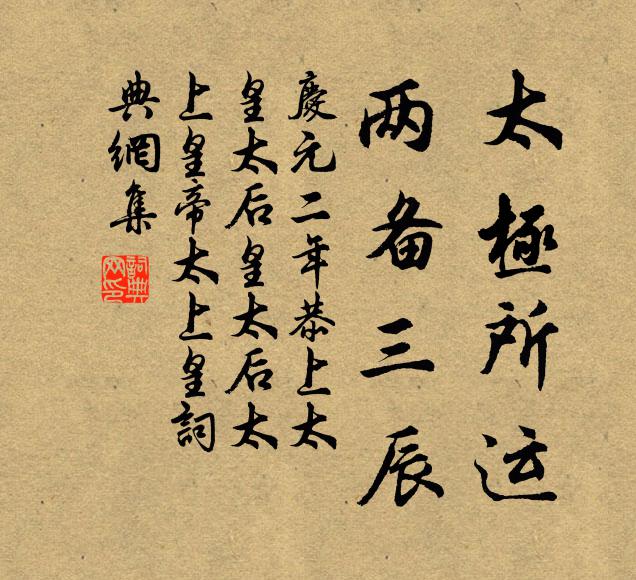 太極所运
两备三辰
慶元二年恭上太
皇太后皇太后太
上皇帝太上皇詞
典網集
詞典
网印